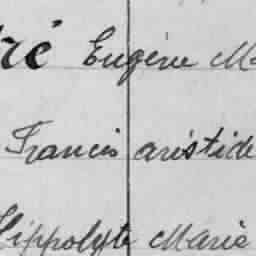 ré Eugène M
Francis aristide
Hippolyte Marie